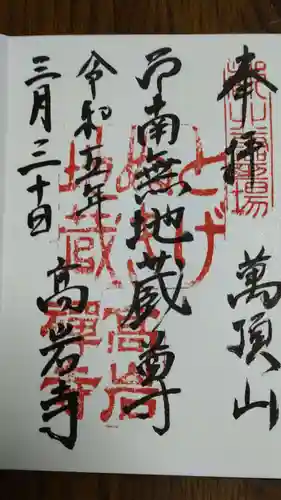 奉拝
萬頂山
南無地蔵尊
令和五年
三月三十日
高岩寺
とげぬき
地蔵
高岩
禅寺